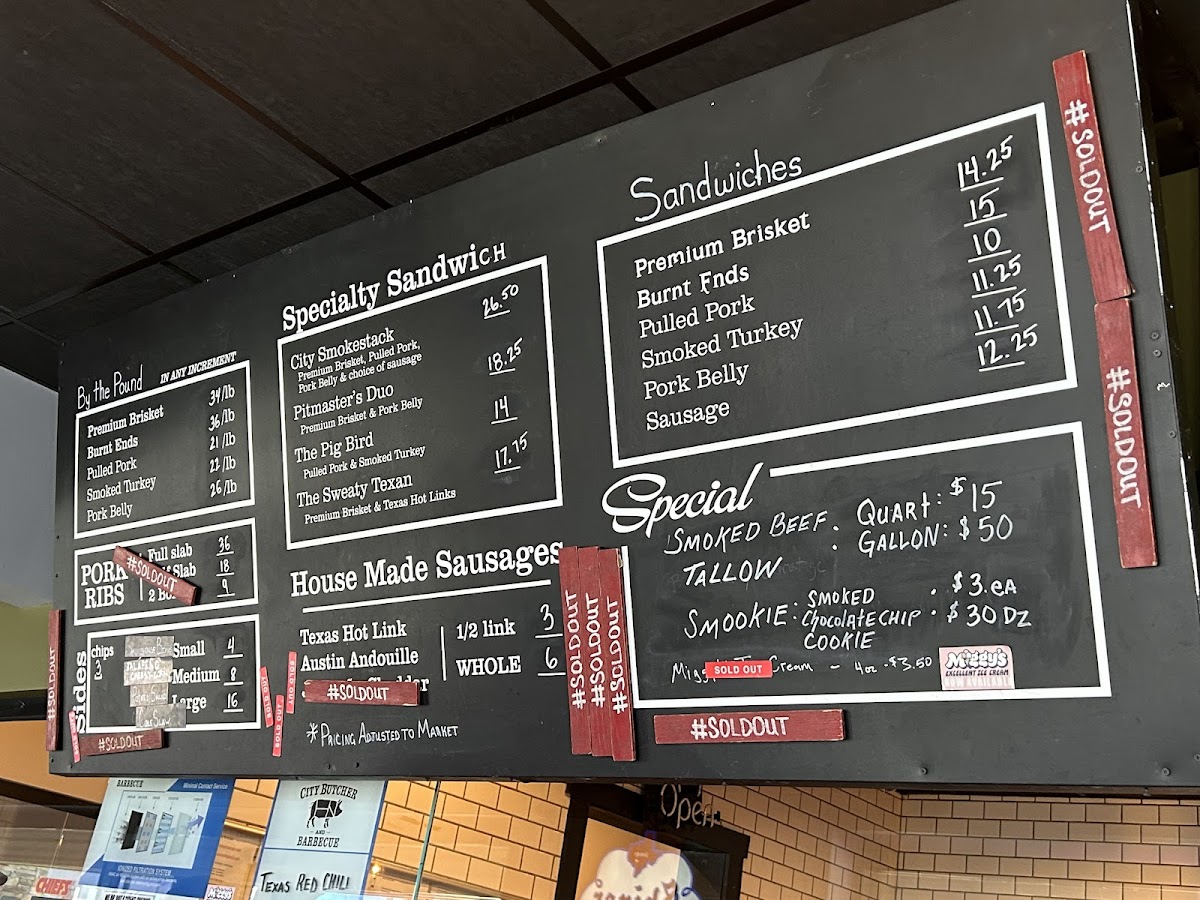 By the Pound IN ANY INCREMENT
Premium Brisket 34/lb
Burnt Ends 36/lb
Pulled Pork 21/lb
Smoked Turkey 22/lb
Pork Belly 26/lb
PORK RIBS
Full slab 36
Slab 18
2 9
#SOLDOUT
Sides
chips
2
Small 4
Medium 8
Large 16
#SOLDOUT
#SOLDOUT
SOLD OUT
SOLD OUT
Specialty Sandwich
City Smokestack 26.50
Premium Brisket, Pulled Pork,
Pork Belly & choice of sausage
Pitmaster's Duo 18.25
Premium Brisket & Pork Belly
The Pig Bird 14
Pulled Pork & Smoked Turkey
The Sweaty Texan 17.75
Premium Brisket & Texas Hot Links
House Made Sausages
Texas Hot Link
Austin Andouille
1/2 link 3
WHOLE 6
#SOLDOUT
*Pricing Adjusted to Market
#SOLDOUT
#SOLDOUT
#SOLDOUT
Sandwiches
Premium Brisket 14.25
Burnt Ends 15
Pulled Pork 10
Smoked Turkey 11.25
Pork Belly 11.75
Sausage 12.25
#SOLDOUT
#SOLDOUT
Special
SMOKED BEEF TALLOW
: QUART: $15
: GALLON: $50
SMOOKIE: SMOKED Chocolate CHIP COOKIE
: $3.eA
: $30 Dz
SOLD OUT
Cream - 4oz - $3.50
Miggy's
EXCELLENT ICE CREAM
NOW AVAILABLE
#SOLDOUT
BARBECUE
Minimal Contact Service
IONIZED FILTRATION SYSTEM
CHIEFS
Miggy's
CITY BUTCHER
AND
BARBECUE
TEXAS RED CHILI
Open